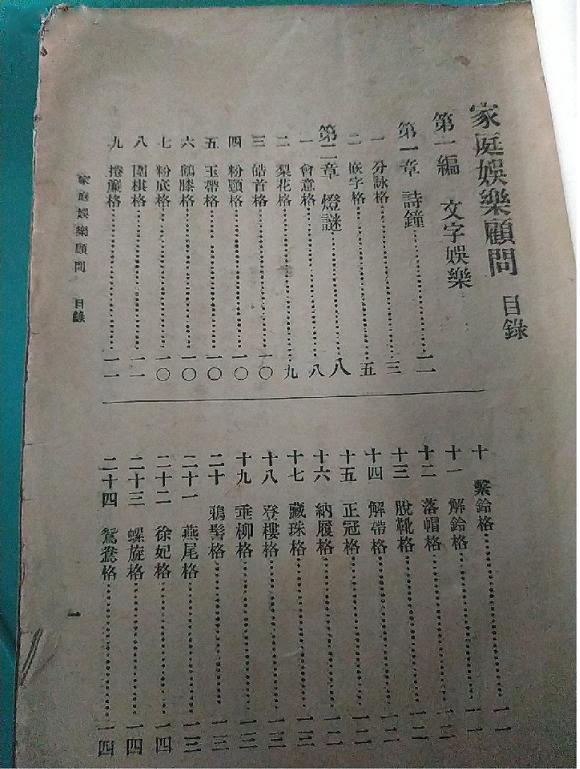 家庭娛樂顧問 目錄
第一編 文字娛樂
第一章 詩鐘……二
一 分詠格……三
二 嵌字格……五
第二章 燈謎……八
一 會意格……八
二 梨花格……九
三 皓首格……一〇
四 粉頸格……一〇
五 玉帶格……一〇
六 鶴膝格……一〇
七 粉底格……一〇
八 圍棋格……一一
九 捲簾格……一一
十 繫鈴格……一一
十一 解鈴格……一一
十二 落帽格……一二
十三 脫靴格……一二
十四 解帶格……一二
十五 正冠格……一二
十六 納履格……一二
十七 藏珠格……一三
十八 登樓格……一三
十九 垂柳格……一三
二十 鴉髻格……一三
二十一 燕尾格……一三
二十二 徐妃格……一四
二十三 螺旋格……一四
二十四 鴛鴦格……一四
家庭娛樂顧問 目錄
一